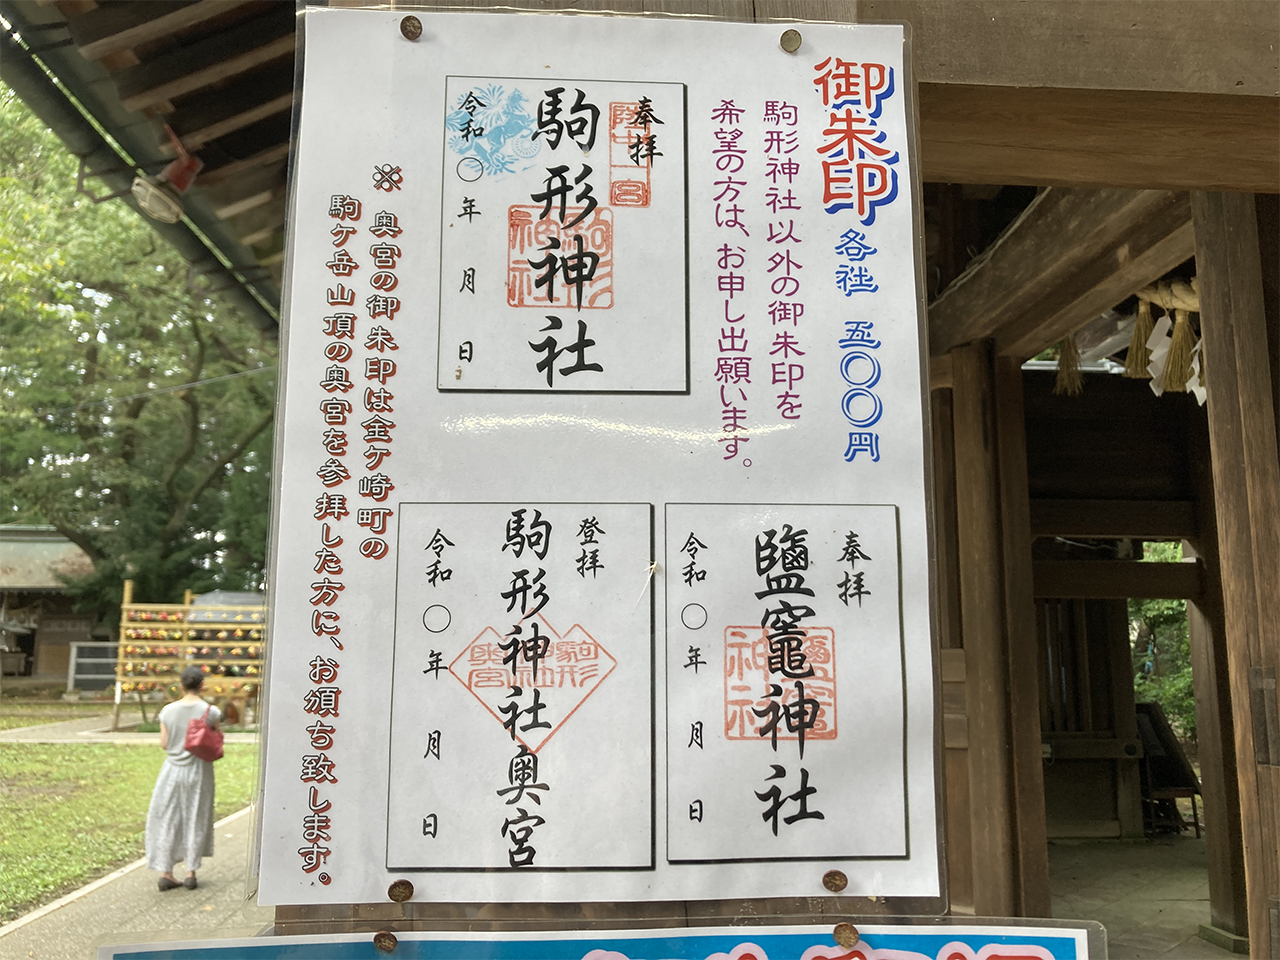 御朱印 各社 五〇〇円
駒形神社以外の御朱印を
希望の方は、お申し出願います。
奉拝
陸中一宮
駒形神社
駒形神社
令和〇年 月 日
※ 奥宮の御朱印は金ケ崎町の
駒ケ岳山頂の奥宮を参拝した方に、お頒ち致します。
奉拝
鹽竈神社
鹽竈神社
令和〇年 月 日
登拝
駒形神社奥宮
駒形神社奥宮
令和〇年 月 日